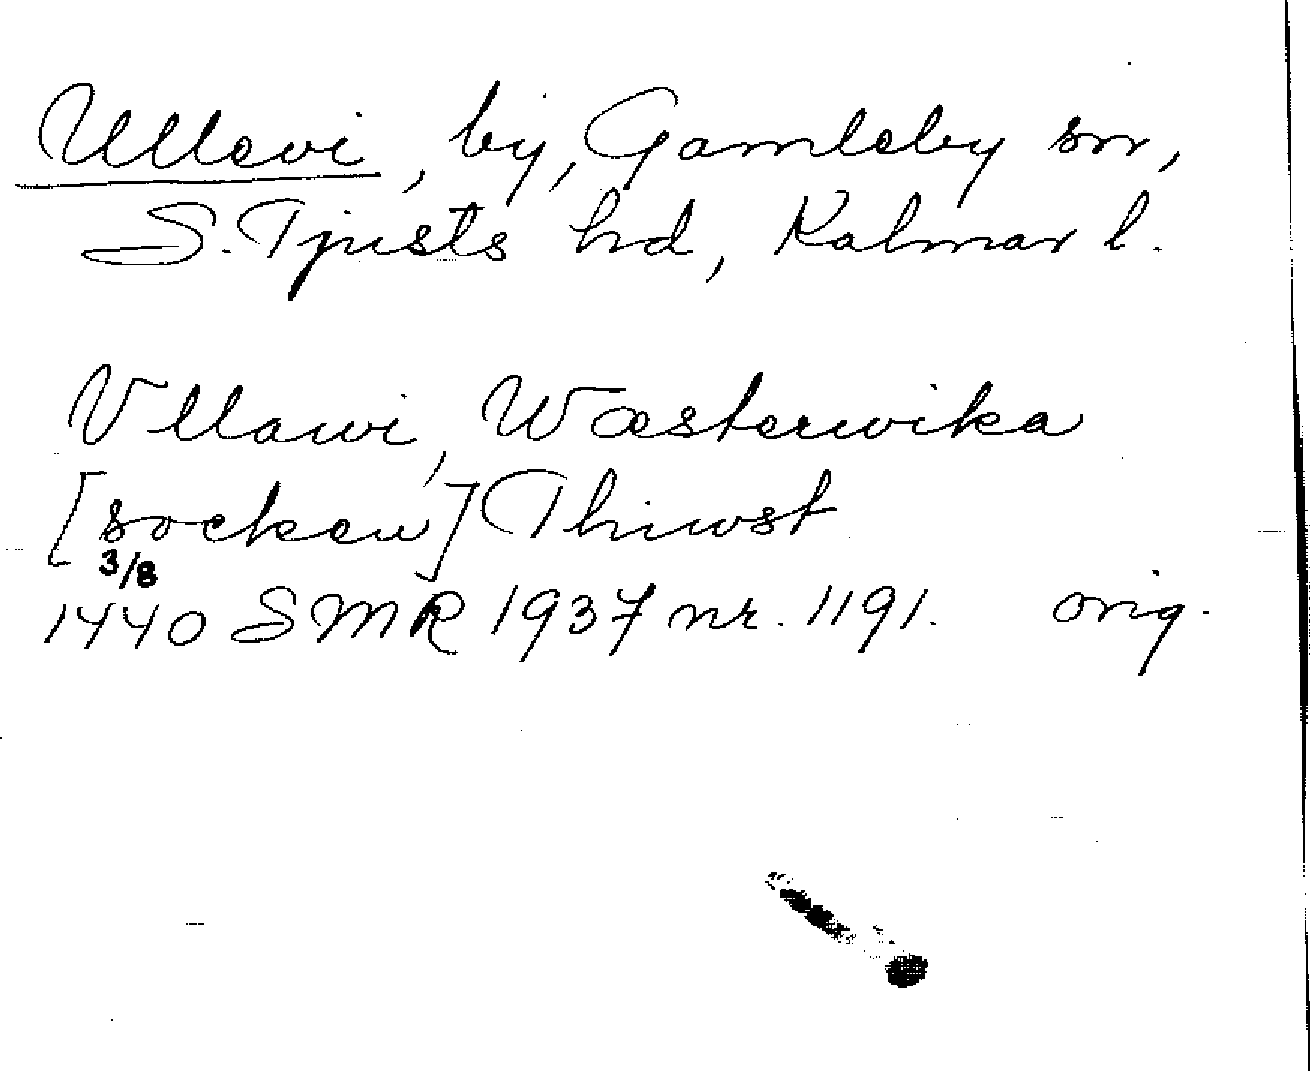 Ullevi, by, Gamleby sn,
S. Tjusts hd, Kalmar l.
Vllawi, Wæsterwika
[socken] Thiwst
3/8
1440 SMR 1937 nr. 1191. orig.